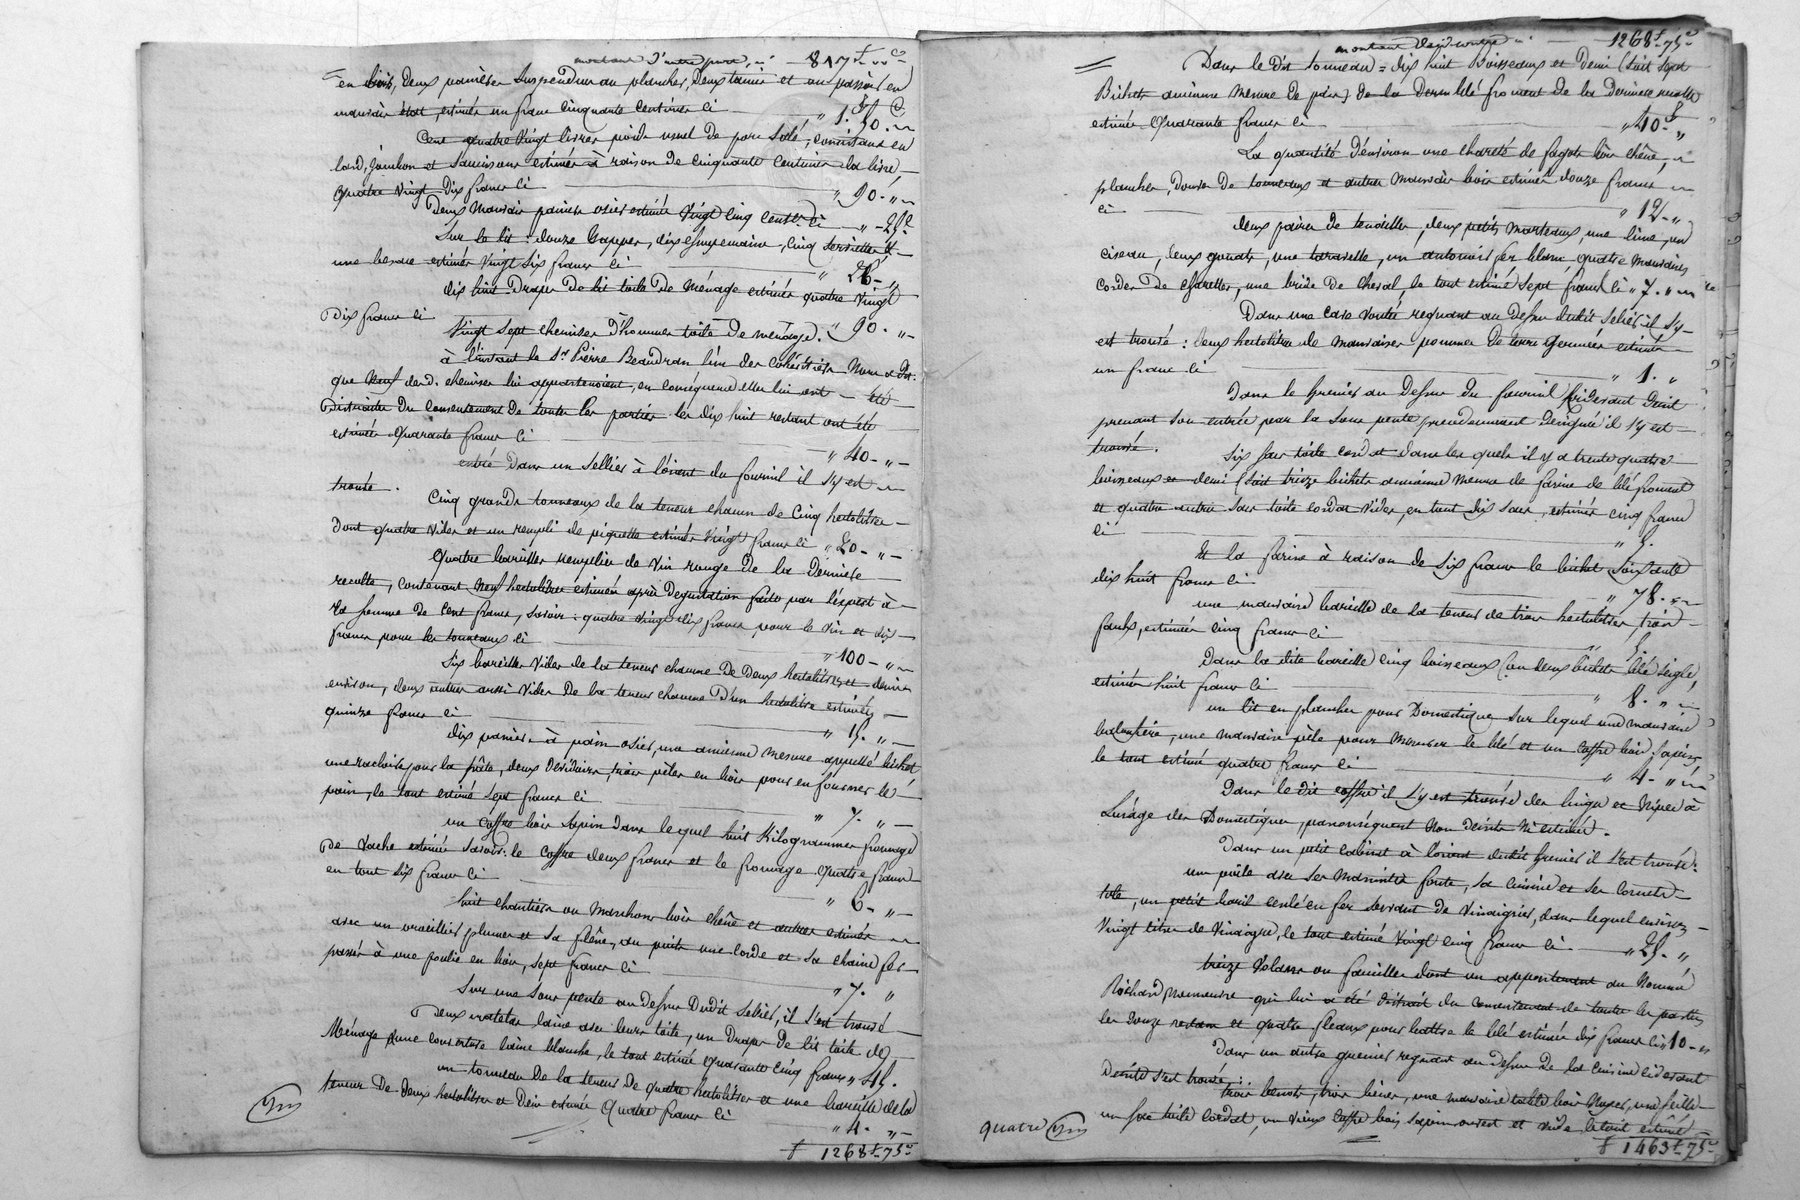 montant d'autre part, ci — 817 f „ c
en bois, deux paniers suspendus au plancher, deux tamis et un passoir en
mauvais état, estimés un franc cinquante centimes ci „ 1. 50.
Cent quatre vingt livres poids usuel de porc salé, consistant en
lard, jambon et saucissons estimés à raison de cinquante centimes la livre,
quatre vingt dix francs ci „ 90. „
Deux mauvais paniers osier estimés vingt cinq cent.s ci „ - 25.c
Sur le lit : douze nappes, dix essuyemains, cinq serviettes et
une besace estimés vingt six francs ci „ 26. „
dix huit draps de lit toile de ménage estimés quatre vingt
dix francs ci „ 90. „
vingt sept chemises d'hommes toile de ménage.
à l'instant le Sr. Pierre Beaudran l'un des cohéritiers
que neuf desd. chemises lui appartenoient, en conséquence elles lui ont été
distraites du consentement de toutes les parties les dix huit restant ont été
estimées quarante francs ci „ 40 - „ -
entré dans un sellier à l'orient du fournil il s'y est
trouvé.
Cinq grands tonneaux de la teneur chacun de cinq hectolitres
dont quatre vides et un rempli de piquette estimés vingt francs ci „ 20 - „ -
Quatre bareilles remplies de vin rouge de la dernière
recolte, contenant neuf hectolitres estimées après degustation faite par l'expert à
la somme de cent francs, savoir : quatre vingt dix francs pour le vin et dix
francs pour les tonneaux ci „ 100 - „
Six bareilles vides de la teneur chacune de deux hectolitres et demi
environ, deux autres aussi vides de la teneur chacune d'un hectolitre estimées
quinze francs ci „ 15. „ -
dix paniers à pain osier, une ancienne mesure appellé bichet
une racloire pour la pâte, deux dévidoirs, trois pèles en bois pour enfourner le
pain, le tout estimé sept francs ci „ 7. „ -
un coffre bois sapin dans lequel huit kilogrammes fromage
de vache estimé savoir : le coffre deux francs et le fromage quatre francs
en tout six francs ci „ 6 - „ -
huit chantiers ou marchons bois chêne et autres estimés
avec un oreillier plumes et sa flêne, au puits une corde et sa chaine fer
passée à une poulie en bois, sept francs ci „ 7. „
Sur une sous pente au dessus dudit sellier, il s'est trouvé
Deux matelas laine avec leurs toile, un drap de lit toile de
ménage, une couverture laine blanche, le tout estimé quarante cinq francs „ 45.
un tonneau de la teneur de quatre hectolitres et une bareille de la
teneur de deux hectolitres et demi estimés quatre francs ci „ 4. „ -
f 1268 f - 75 c
montant d'autre part ci — 1268 f - 75 c
Dans le dit tonneau = dix huit boisseaux et demi (soit sept
Bichets ancienne mesure de pays) de blé froment de la dernière recolte
estimés quarante francs ci „ 40. „
La quantité d'environ une charetée de fagots bois chêne,
plancher, douves de tonneaux et autres mauvais bois estimés douze francs
ci „ 12 - „
deux paires de tenailles, deux petits marteaux, une lime, un
ciseau, deux gouets, une taravelle, un entonnoir fer blanc, quatre mauvaises
cordes de charettes, une bride de cheval le tout estimé sept francs ci „ 7. „
Dans une cave voutée regnant au dessus dudit sellier il s'y
est trouvé : deux hectolitres de mauvaises pommes de terre germées estimés
un franc ci „ 1. „
Dans le grenier au dessus du fournil ci devant décrit
prenant son entrée par la sous pente precedemment designée il s'y est
trouvé.
Six sacs toile cordat dans les quels il y a trente quatre
boisseaux et demi (soit treize bichets ancienne mesure de farine de blé froment
et quatre autres sacs toile cordat vides, en tout dix sacs, estimés cinq francs
ci „ 5.
Et la farine à raison de six francs le bichet soixante
dix huit francs ci „ 78. „
une mauvaise bareille de la teneur de trois hectolitres, trois
faulx, estimées cinq francs ci „ 5
Dans la dite bareille cinq boisseaux (ou deux bichets) blé seigle,
estimés huit francs ci „ 8. „
un lit en plancher pour domestique sur lequel une mauvaise
balouffière, une mauvaise pèle pour mesurer le blé et un coffre bois sapin,
le tout estimé quatre francs ci „ 4. „
Dans le dit coffre il s'y est trouvé des linges et nippes à
l'usage des domestiques, par conséquent non décrits ni estimés.
Dans un petit cabinet à l'orient dudit grenier il s'est trouvé :
un poële avec ses marmites fonte, sa cuisine et ses cornets
tole, un petit baril cerclé en fer servant de vinaigrier, dans lequel environ
vingt litres de vinaigre, le tout estimé vingt cinq francs ci. „ 25. „
treize volants ou faucilles dont un appartenant au nommé
Richard qui lui a été distrait du consentement de toutes les parties
les douze restans et quatre fleaux pour battre le blé estimés dix francs ci „ 10 - „
Dans un autre grenier regnant au dessus de la cuisine ci devant
décrite s'est trouvé :
trois bennots, trois bènes, une mauvaise table bois noyer, une seille
un sac toile cordat, un vieux coffre bois sapin ouvert et vide le tout estimé
quatre
f 1463 f - 75 c